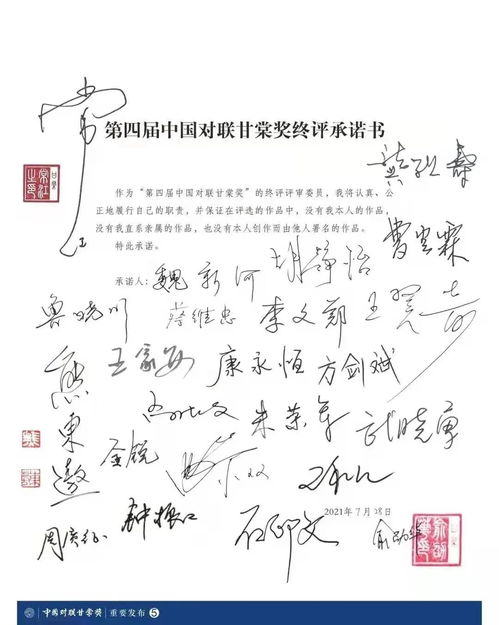 第四届中国对联甘棠奖终评承诺书
龚红寿
常江之印
作为“第四届中国对联甘棠奖”的终评评审委员，我将认真、公
正地履行自己的职责，并保证在评选的作品中，没有我本人的作品，
没有我直系亲属的作品，也没有本人创作而由他人署名的作品。
特此承诺。
曹云霖
承诺人：魏新河 胡静怡
鲁晓川 蒋维忠 李文郑
王家安 康永恒 方剑斌
熊东遨
朱荣军 武晓勇
金锐
2021年7月28日
钟振口 石印文 俞劲华
周广征
中国对联甘棠奖 | 重要发布 5